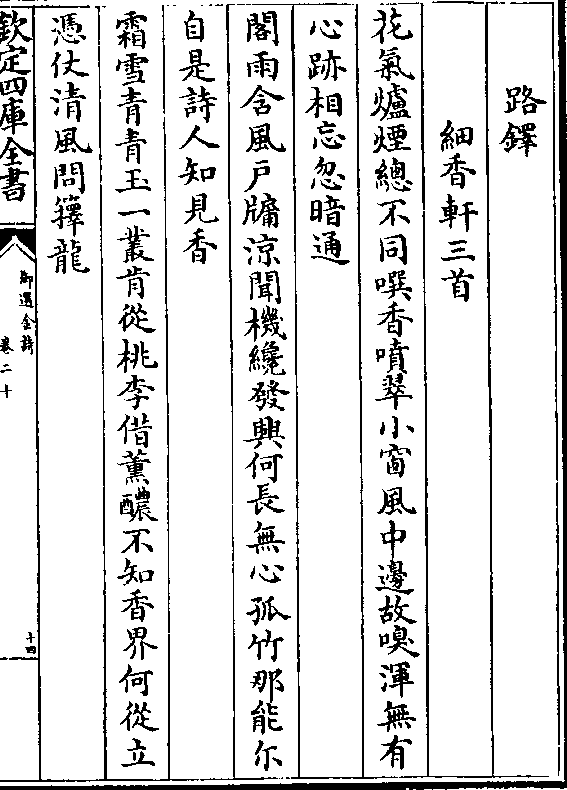 路鐸
細香軒三首
花氣爐煙總不同噀香噴翠小窗風中邊故嗅渾無有
心跡相忘忽暗通
閣雨含風戶牖涼聞機纔發興何長無心孤竹那能尔
自是詩人知見香
霜雪青青玉一叢肯從桃李借薰醲不知香界何從立
憑仗清風問籜龍
欽定四庫全書
御選金詩
卷二十
十四